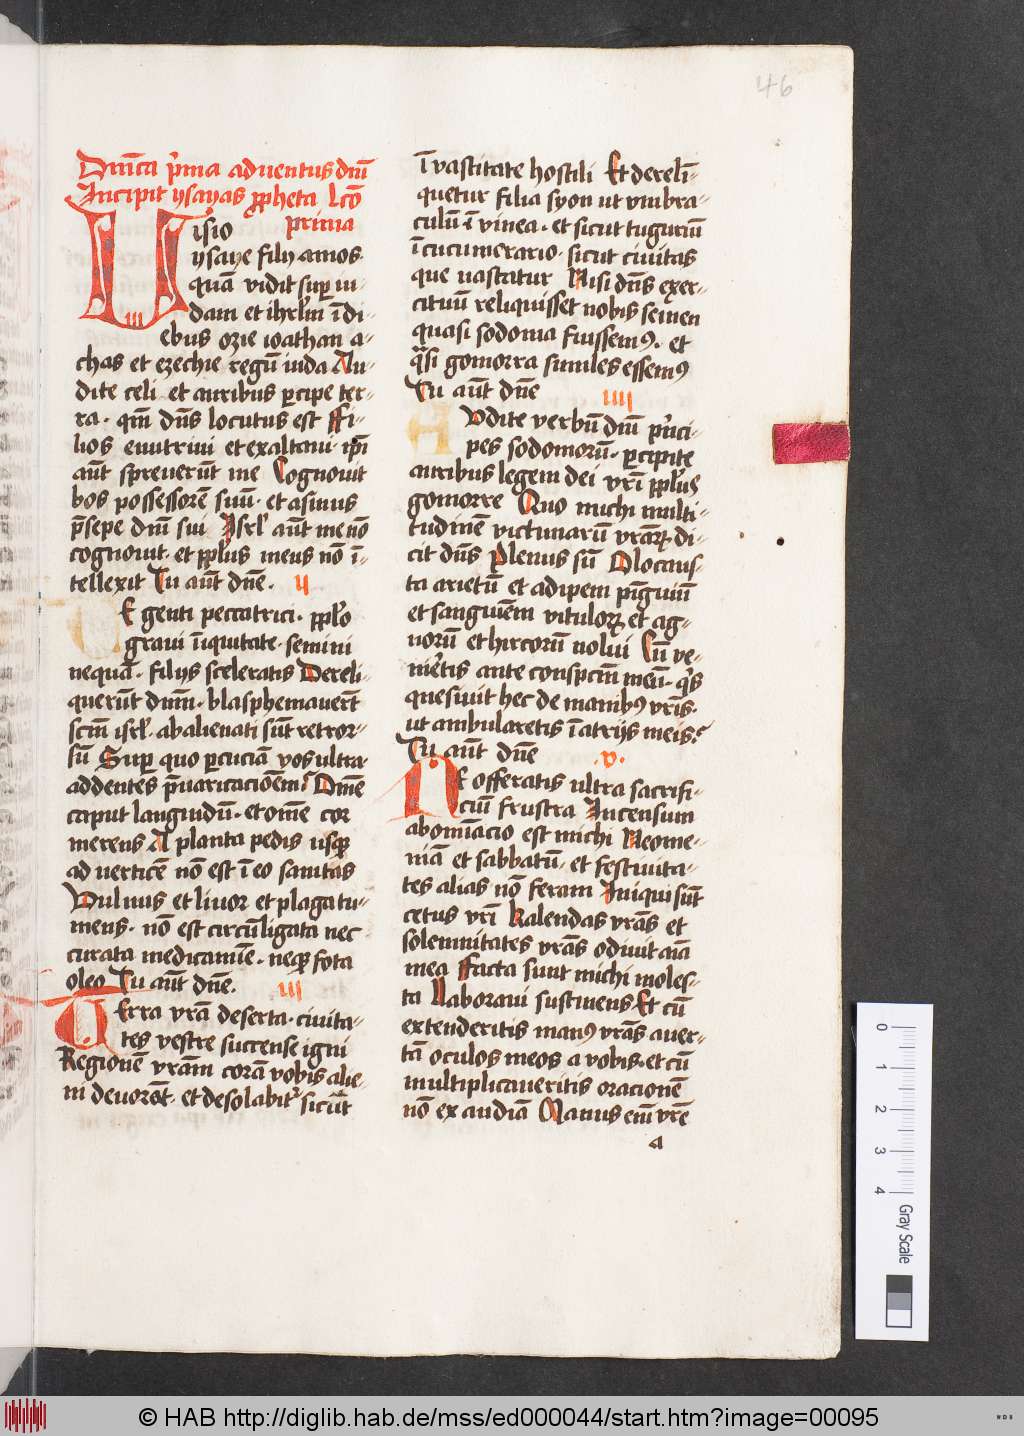 46
Dn̄ica p̄ma aduentus dn̄i
Incipit ysayas p̱pheta Lc̄o
prima
Visio
ysaye filij amos·
quā vidit suꝑ iu-
dam et ihrl̄m ī di-
ebus ozie ioathan a-
chas et ezechie regū iuda Au-
dite celi et auribus ꝑcipe ter-
ra · qm̄ dn̄s locutus est Fi-
lios enutriui et exaltaui · ip̄i
aūt spreuerūt me Cognouit
bos possessorē suū · et asinus
p̄sepe dn̄i sui Isrl̄ aūt me nō
cognouit · et ppl̄us meus nō ī-
tellexit Tu aūt dn̄e · ij
VE genti peccatrici · ppl̄o
graui īiquitate · semini
nequā · filijs sceleratis Dereli-
querūt dn̄m · blasphemauerūt
scm̄ isrl̄ · abalienati sūt retror-
sū Suꝑ quo ꝑcuciā vos ultra
addentes p̄uaricacionem Om̄e
caput languidū · et om̄e cor
merens A planta pedis usqꝫ
ad verticē nō est ī eo sanitas
Vulnus et liuor et plaga tu-
mens · nō est circūligata nec
curata medicamīe · neqꝫ fota
oleo Tu aūt dn̄e · iij
TErra vrā deserta · ciuita-
tes vestre succense igni
Regionē vrām corā vobis alie-
ni deuorāt · et desolabit᷑ sicut
ī vastitate hostili Et dereli-
quetur filia syon ut vmbra-
culū ī vinea · et sicut tuguriū
ī cucumerario · sicut ciuitas
que uastatur Nisi dn̄s exer-
cituū reliquisset nobis semen
quasi sodoma fuissemꝰ · et
qͣsi gomorra similes essemꝰ
Tu aūt dn̄e iiij
AVdite verbū dn̄i prīci-
pes sodomorū · ꝑcipite
auribus legem dei vrī ppl̄us
gomorre Quo michi multi-
tudinē victimarū vrāꝝ · di-
cit dn̄s Plenus sū Olocaus-
ta arietū et adipem pīguiū
et sanguinem vituloꝝ et ag-
norū et hircorū nolui Cū ve-
nietis ante conspcm̄ meū · qͥs
quesiuit hec de manibꝰ vris ·
ut ambularetis ī atrijs meis
Tu aūt dn̄e · v ·
NE offeratis ultra sacrifi-
ciū frustra Incensum
abomīacio est michi Neome-
niā et sabbatū · et festiuita-
tes alias nō feram Iniqui sūt
cetus vrī Kalendas vrās et
solennitates vrās odiuit aīa
mea Facta sunt michi moles-
ta Laboraui sustinens Et cū
extenderitis manꝰ vrās auer-
tā oculos meos a vobis · et cū
multiplicaueritis oracionē
nō exaudiā Manus em̄ vrē
a
0
1
2
3
4
Gray Scale
© HAB http://diglib.hab.de/mss/ed000044/start.htm?image=00095